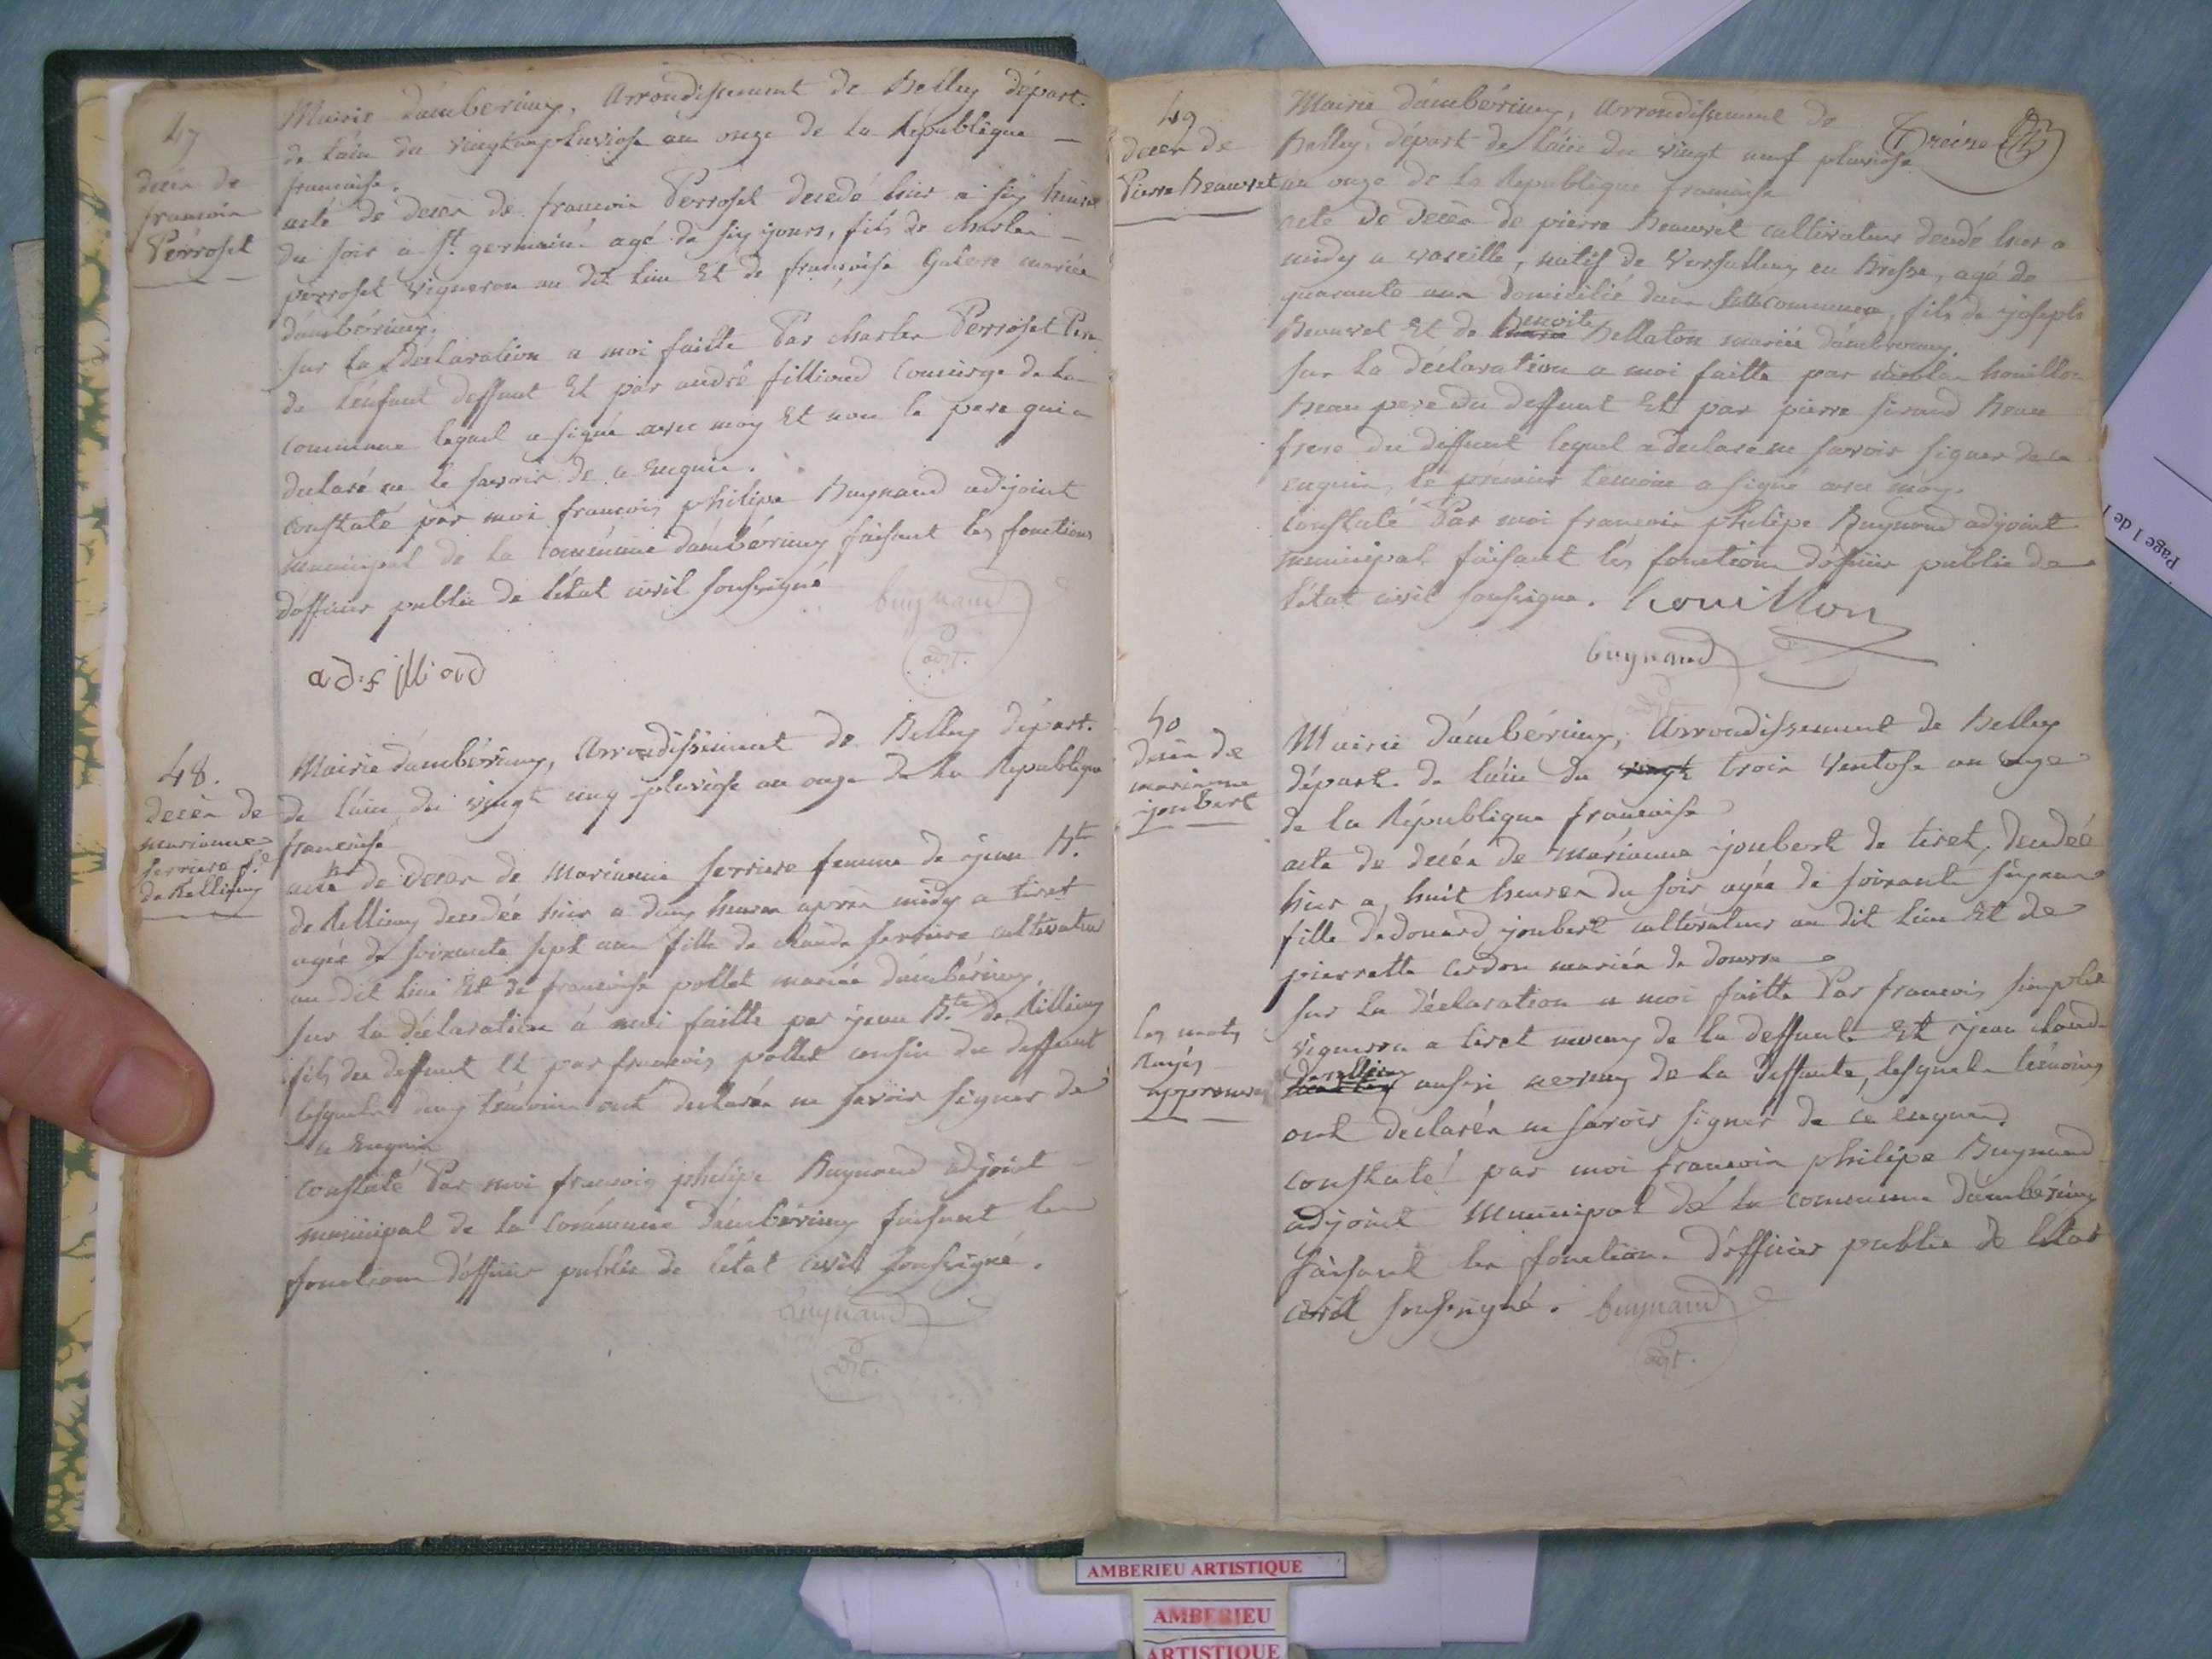 47
decès de
francois
Perroset
Mairie d'ambérieux, Arrondissement de Belley départ.
de l'ain du vingt un pluviose an onze de la République
francaise.
acte de decès de francois Perroset decedé hier a six heures
du soir a St. germain agé de six jours, fils de charles
perroset vigneron au dit lieu Et de françoise mariés
d'ambérieux.
sur la Déclaration a moi faitte Par charles Perroset Pere
de l'enfant deffunt Et par andré filliod Concierge de la
commune lequel a signé avec moy Et non le pere qui a
declaré ne le savoir de ce enquis.
Constaté par moi francois philipe Buynand adjoint
municipal de la Commune d'ambérieux faisant les fonctions
d'officier public de l'état civil soussigné
buynand
adjt.
ad. filliod
48.
decès de
marianne
ferriere f.e
de Rellieux
Mairie d'ambérieux, Arrondissement de Belley départ.
de l'ain du vingt cinq pluviose an onze de la République
francaise
acte de decès de Marianne ferriere femme de jean Bte.
de Rellieux decedée hier a deux heures après midy a tiret
agée de soixante sept ans fille de claude ferriere cultivateur
au dit lieu Et de francoise pollet mariés d'ambérieux.
sur la déclaration à moi faitte par jean Bte. de Rillieux
fils du deffunt Et par francois pollet cousin du deffunt
lesquels deux témoins ont declarés ne savoir signer de
ce Enquis
Constaté Par moi francois philipe Buynand adjoint
municipal de la Commune d'ambérieux faisant les
fonctions d'officier public de l'état civil soussigné.
buynand
adjt.
49
decès de
Pierre Beauvret
Mairie d'ambérieux, arrondissement de
Treize
Belley, départ de l'ain du vingt neuf pluviose
an onze de la République francaise
acte de decès de pierre Beauvret cultivateur decedé hier a
midy a vareille, natif de Versailleux en Bresse, agé de
quarante ans domicilié dans cette commune, fils de joseph
Beauvret Et de Benoite Bellaton mariés d'ambérieux.
sur la déclaration a moi faitte par nicolas houillon
Beau pere du deffunt Et par pierre sirand Beau
frere du deffunt lequel a declaré ne savoir signer de ce
enquis, le premier témoin a signé avec moy.
Constaté Par moi francois philipe Buynand adjoint
municipal faisant les fonctions d'officier public de
l'état civil soussigné. houillon
buynand
50
decès de
marianne
joubert
Mairie d'ambérieux, Arrondissement de Belley
départ. de l'ain du vingt trois Ventose an onze
de la République francaise
acte de decès de marianne joubert de tiret, decedée
hier a huit heures du soir agée de soixante six ans
fille d'edouard joubert cultivateur au dit lieu Et de
pierrette cordon mariés de
sur la déclaration a moi faitte Par francois simplet
vigneron a tiret neveux de la deffunte Et jean claude
derellieux aussi neveux de la deffunte, lesquels témoins
ont declarés ne savoir signer de ce enquis
Constaté par moi francois philipe Buynand
adjoint Municipal de la commune d'ambérieux
faisant les fonctions d'officier public de l'état
civil soussigné. buynand
adjt.
les mots
Rayés
approuvés
Page 1 de 1
AMBERIEU ARTISTIQUE
AMBERIEU
ARTISTIQUE